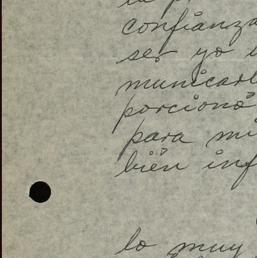 confianza
ser yo
municarl
porcionó
para mi
bién inf
lo muy